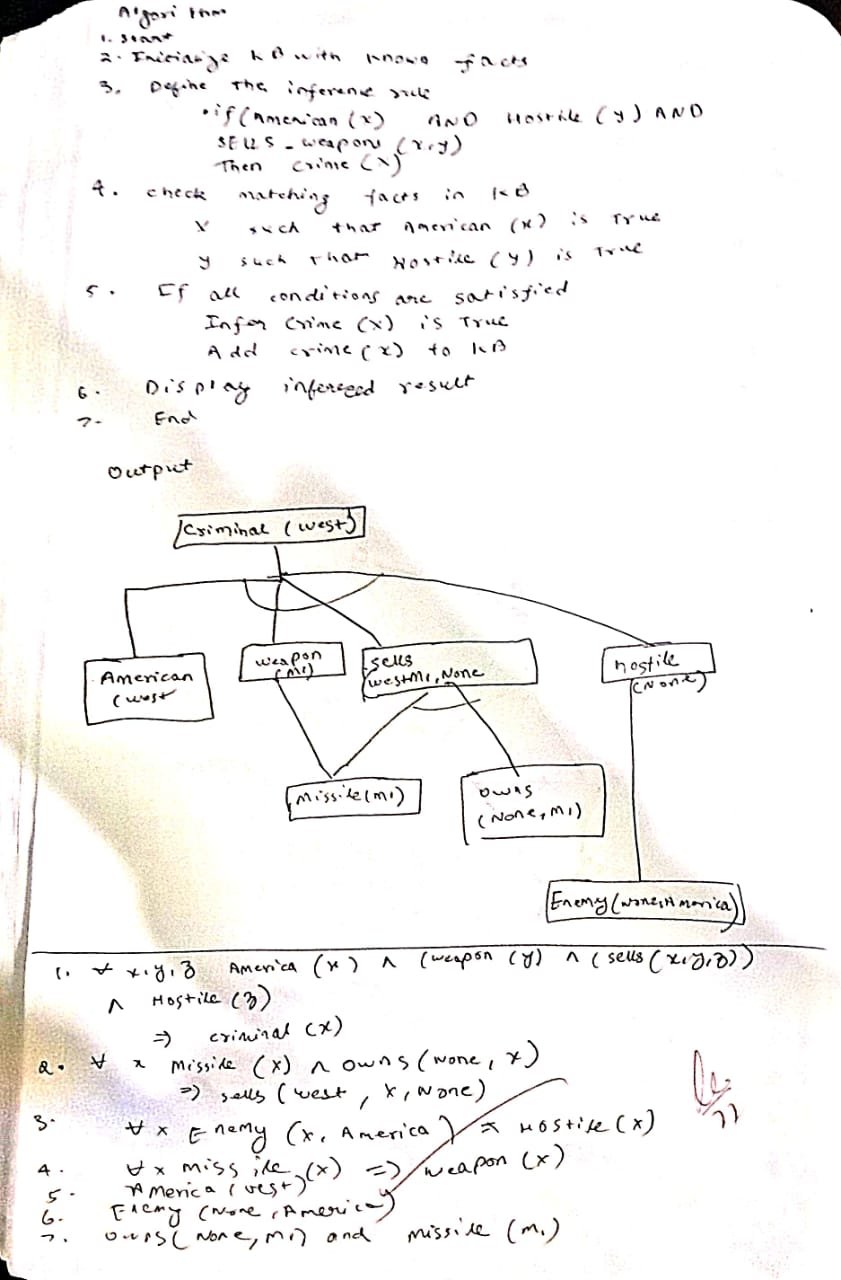 Algorithm
1. Start
2. Initialize KB with known facts
3. Define The inference rule
• if (American (x) AND Hostile (y) AND
SELLS - weapons (x,y)
Then crime (x)
4. check matching facts in KB
X such that American (x) is True
y such that Hostile (y) is True
5. If all conditions are satisfied
Infer Crime (x) is True
Add crime (x) to KB
6. Display infereged result
7. End
Output
Criminal (west)
American
(west
weapon
(M1)
sells
(westM1, None
hostile
(None)
Missile (M1)
owns
(None, M1)
Enemy (None, America)
1. ∀ x,y,z America (x) ∧ (weapon (y) ∧ (sells (x,y,z))
∧ Hostile (z)
⇒ criminal (x)
2. ∀ x Missile (x) ∧ owns (None, x)
⇒ sells (west, x, None)
3. ∀ x Enemy (x, America) ⇒ Hostile (x)
4. ∀ x missile (x) ⇒ weapon (x)
5. America (west)
6. Enemy (None, America)
7. owns (None, M1) and missile (M1)